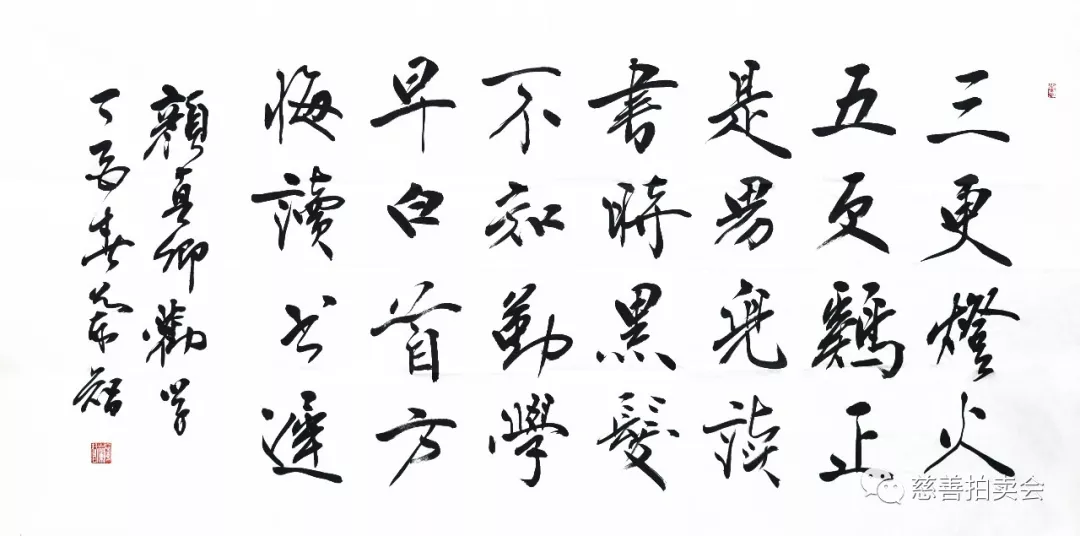 三更燈火
五更鷄正
是男兒读
書時黑髮
不知勤學
早白首方
悔讀书遲
顔真卿勸学
丁酉春
慈善拍卖会